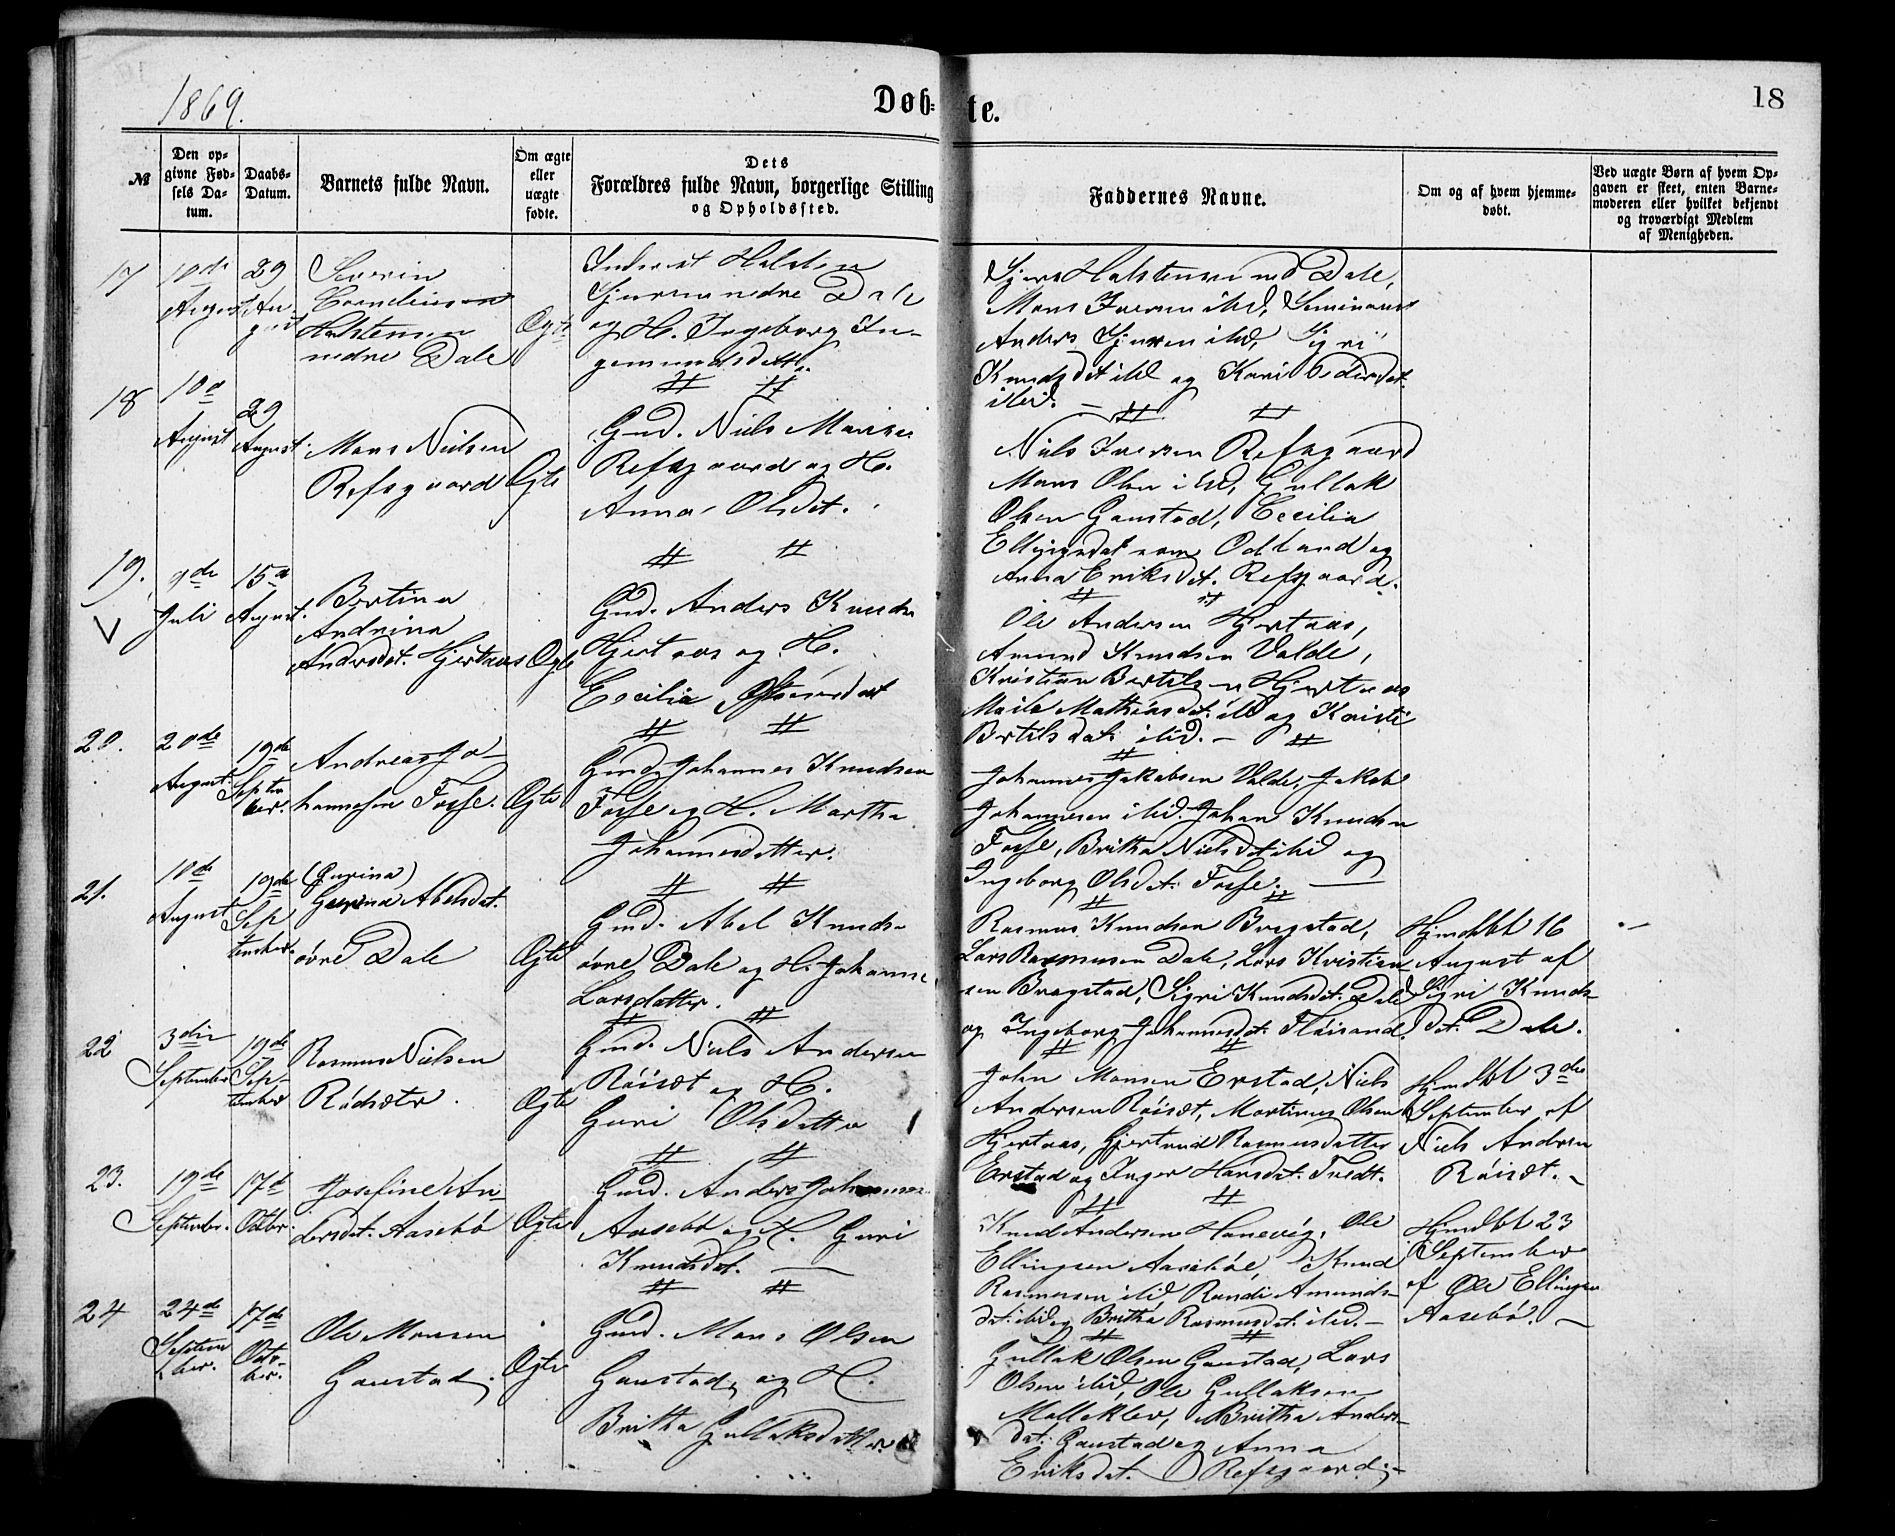 1869.
Døb-
te.
18
№
Den op-
givne Fød-
sels Da-
tum.
Daabs-
Datum.
Barnets fulde Navn.
Om ægte
eller
uægte
fødte.
Dets
Forældres fulde Navn, borgerlige Stilling
og Opholdssted.
Faddernes Navne.
Om og af hvem hjemme-
døbt.
Ved uægte Børn af hvem Op-
gaven er skeet, enten Barne-
moderen eller hvilket bekjendt
og troværdigt Medlem
af Menigheden.
17
10de
August
29
Au-
gust
Severin
Halstensen
nedre Dale
Ægte
Halsten
Sjursen nedre Dale
og H. Ingeborg In-
gemundsdatter
Sjurs Halstensen ned Dale,
Mons Iversen ibid,
Anders Sjursen ibid, Sigri
Knudsdt ibid og Kari Pedersdt.
ibid. -
18
10d
August
29
August.
Mons Nielsen
Refsgaard
Ægte
Gmd. Niels Monsen
Refsgaard og H.
Anna Olsdt.
Niels Iversen Refsgaard
Mons Olsen ibid, Gullak
Olsen Gaustad, Cecilia
Ellingsdat Odland og
Anna Eriksdt. Refsgaard.
19.
V
9de
Juli
15d
August.
Bertina
Andrina
Andersdt. Hjertaas
Ægte
Gmd. Anders Knudsen
Hjertaas og H.
Cecilia
Ole Andersen Hjertaas,
Amund Knudsen Valde,
Kristian Bertelsen Hjertaas
Mathiasdt. ibid og Kristi
Bertelsdat: ibid. -
20.
20de
August
19de
Septem
ber.
Andreas Jo-
hannesen Fosse.
Ægte
Gmd. Johannes Knudsen
Fosse og H. Martha
Johannesdatter.
Johannes Jakobsen Valde, Jakob
Johannesen ibid. Johan Knudsen
Fosse, Britha Nielsdt ibid og
Ingeborg Olsdt: Fosse. -
21.
10de
August
19de
Sep
tember.
(Gurina)
Gurina Abelsdt.
øvre Dale
Ægte
Gmd. Abel Knuds-
øvre Dale og H. Johanne
Larsdatter.
Rasmus Knudsen Bragstad,
Lars Rasmusen Dale, Lars Kristian
sen Bragstad, Sigri Knudsdt. Dale
og Ingeborg Johannesdt. Fløisand.
Hjmdbt 16
August af
Sigri Knuds-
dt: Dale.
22
3die
September
19de
Sep-
tember
Rasmus Nielsen
Rødsæter.
Ægte
Gmd. Niels Andersen
Röisæt og H.
Guri Olsdatter
John Monsen Erstad, Niels
Andersen Röisæt, Martinus Olsen
Hjertaas, Gjertrud Rasmusdatter
Erstad og Inger Hansdt. Tvedt.
Hjmdbt 3de
September af
Niels Andersen
Röisæt. -
23.
19de
September.
17d
Octbr.
Josefine An-
dersdt. Aasebö
Ægte
Gmd. Anders Johannesen
Aasebø og H. Guri
Knudsdt.
Knud Andersen Hanevig, Ole
Ellingsen Aasebøe, Knud
Rasmusen ibid, Randi Amunds-
dt: ibid og Britha Rasmusdt: ibid. -
Hjmdbt 23
September
af Ole Ellingsen
Aasebö. -
24
24de
Septem
ber.
17de
Octo-
ber.
Ole Monsen
Gaustad.
Ægte
Gmd. Mons Olsen
Gaustad og H.
Britha Gullaksdatter
Gullak Olsen Gaustad, Lars
Olsen ibid, Ole Gullaksen
Molleklev, Britha Anders-
dt: Gaustad og Anna
Eriksdt. Refsgaard. -